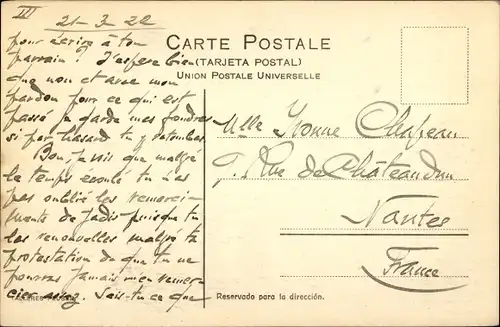 III
21-3-22
pour écrire à ton
parrain ? J'espère bien
que non et avec mon
pardon pour ce qui est
passé je garde mes foudres
si par hasard tu y retombes.
Bon, je vois que malgré
le temps écoulé tu n'as
pas oublié les remerci-
ments de jadis puisque tu
les renouvelles malgré ta
protestation de que tu ne
pourras jamais m'en remer-
cier assez. Sais-tu ce que
CARTE POSTALE
(TARJETA POSTAL)
UNION POSTALE UNIVERSELLE
Mlle Yvonne Chapeau
9, Rue de Châteaudun
Nantes
France
Reservado para la dirección.